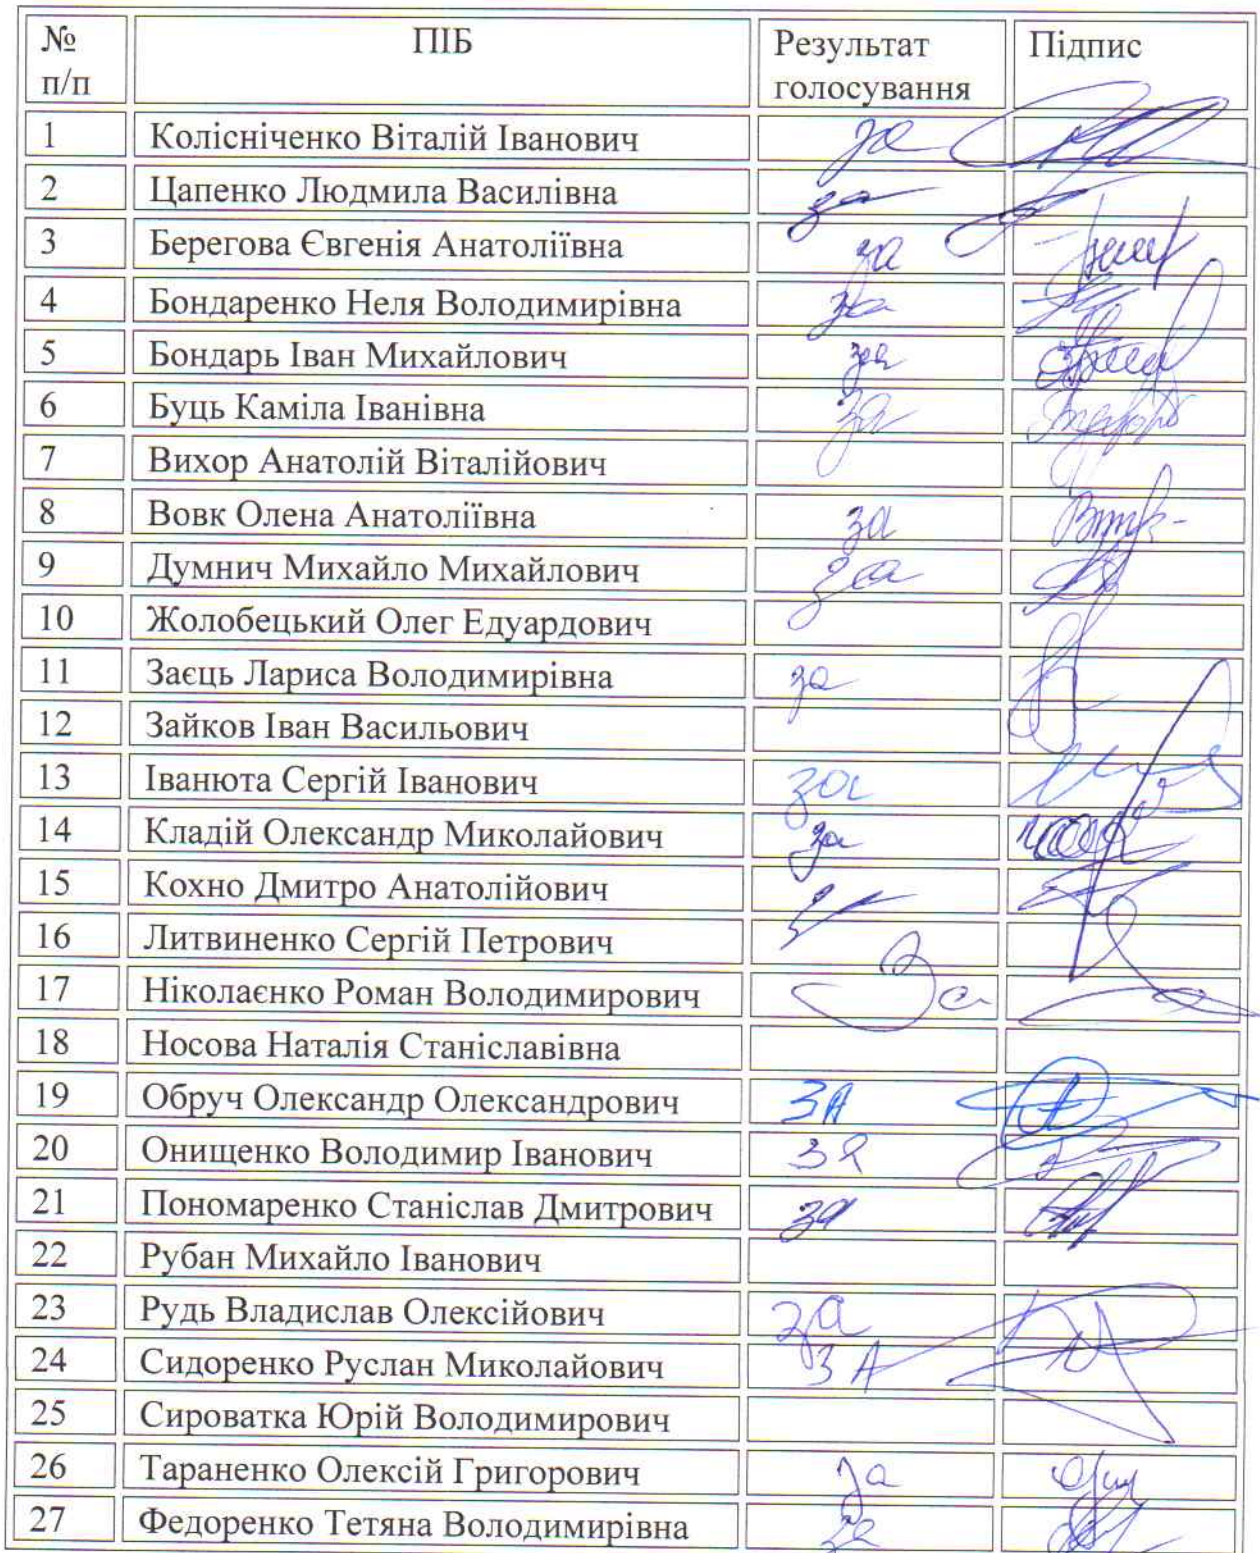 № п/п ПІБ Результат голосування Підпис
1 Колісніченко Віталій Іванович за
2 Цапенко Людмила Василівна за
3 Берегова Євгенія Анатоліївна за
4 Бондаренко Неля Володимирівна за
5 Бондарь Іван Михайлович за
6 Буць Каміла Іванівна за
7 Вихор Анатолій Віталійович
8 Вовк Олена Анатоліївна за
9 Думнич Михайло Михайлович за
10 Жолобецький Олег Едуардович
11 Заєць Лариса Володимирівна за
12 Зайков Іван Васильович
13 Іванюта Сергій Іванович за
14 Кладій Олександр Миколайович за
15 Кохно Дмитро Анатолійович
16 Литвиненко Сергій Петрович
17 Ніколаєнко Роман Володимирович За
18 Носова Наталія Станіславівна
19 Обруч Олександр Олександрович ЗА
20 Онищенко Володимир Іванович за
21 Пономаренко Станіслав Дмитрович за
22 Рубан Михайло Іванович
23 Рудь Владислав Олексійович за
24 Сидоренко Руслан Миколайович ЗА
25 Сироватка Юрій Володимирович
26 Тараненко Олексій Григорович за
27 Федоренко Тетяна Володимирівна за